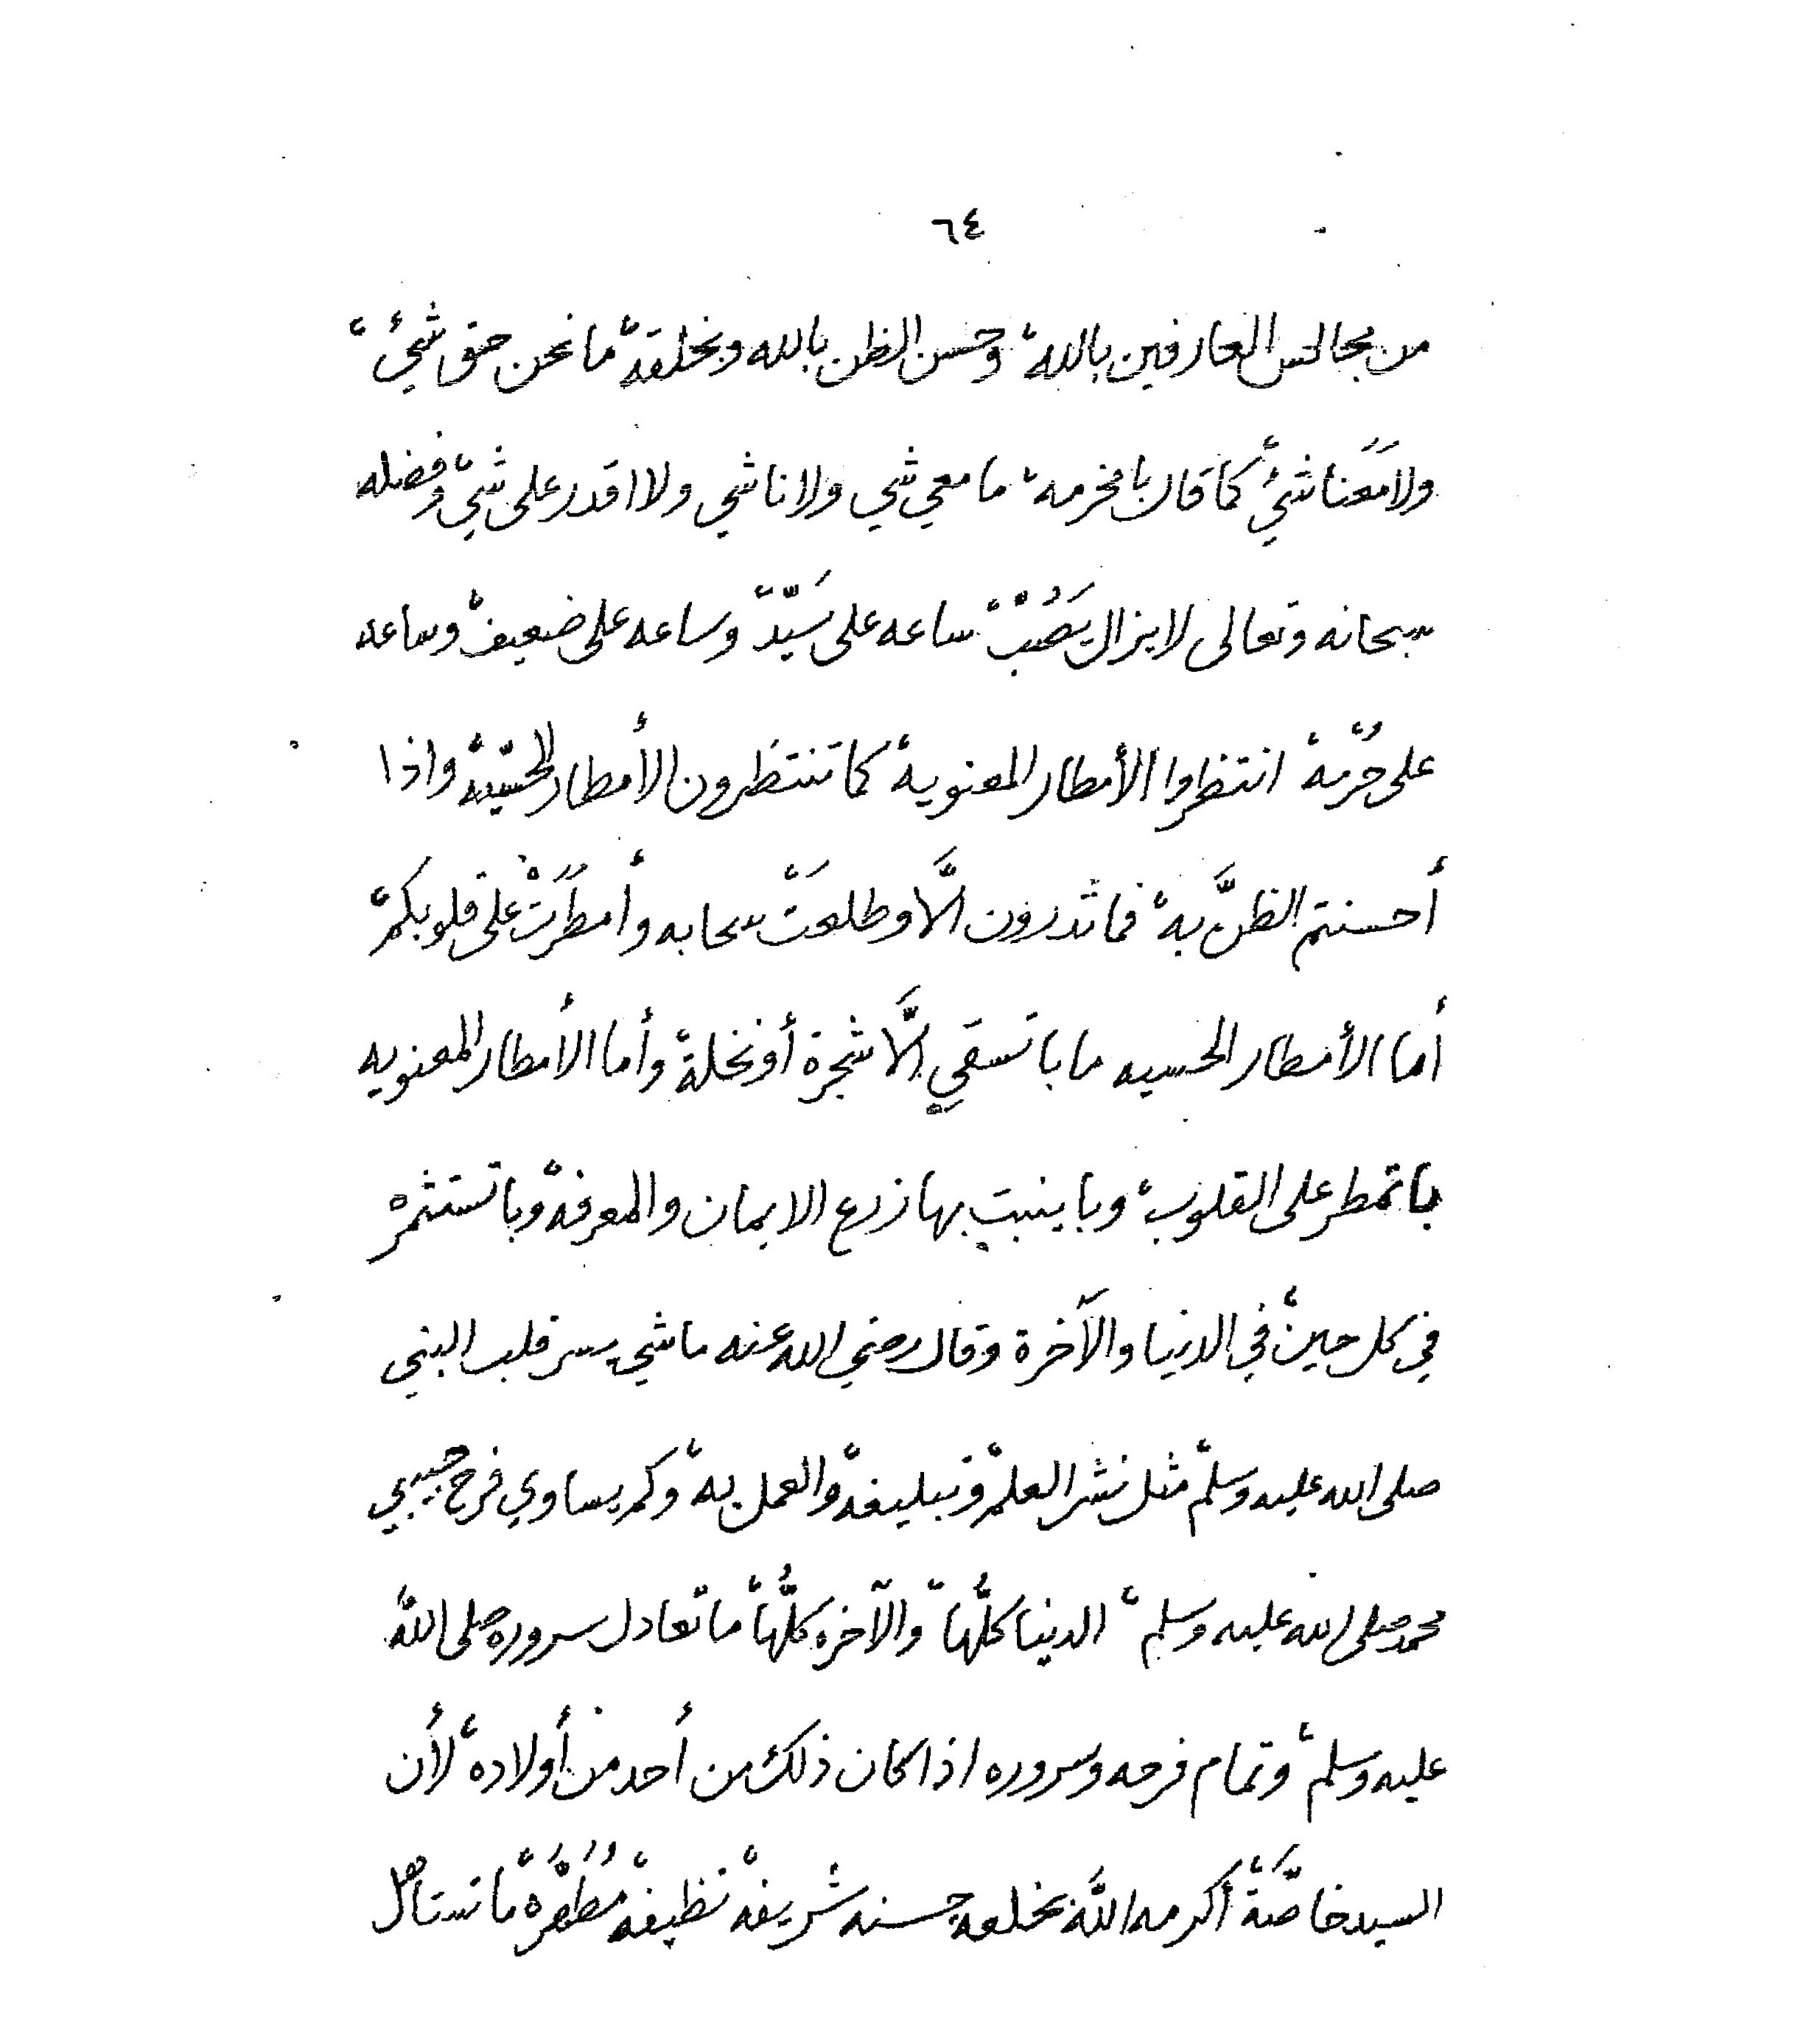 ٦٤
من مجالس العارفين بالله، وحسن الظن بالله وبخلقه، ما نحن حق شيءْ،
ولا مَعَنا شيءْ كما قال بامخرمه، ما معي شي ولا ناشي ولا اقدر على شي، وفضله
سبحانه وتعالى لا يزال يَصُبّْ، ساعه على سَيّدْ، وساعه على ضعيفْ، وساعه
على حُرْمهْ، انتظروا الأمطار المعنوية، كما تنتظرون الأمطار الحسّيّة، واذا
أحسنتم الظنَّ به، فما تدرون الَّا وطلعَتْ سحابه وأمطرَتْ على قلوبكم،
أما الأمطار الحسيه ما با تسقي الَّا شجرة أو نخلة، وأما الأمطار المعنويه
با تمطر على القلوب، وبا ينبت بها زرع الايمان والمعرفة، وبا تستثمرْ
في كل حين، في الدنيا والآخرة وقال رضي الله عنه ما شي يسر قلب النبي
صلى الله عليه وسلم، مثل نشر العلم، وتبليغه، والعمل به، وكم يساوي فرح حبيبي
محمد صلى الله عليه وسلم، الدنيا كلُّها، والآخره كلُّها، ما تعادل سروره صلى الله
عليه وسلم، وتمام فرحه وسروره اذا كان ذلك من أحد من أولاده، لأن
السيد خاصَّةْ، أكرمه الله بخلعه حسنه شريفهْ، نظيفهْ، مُطَهَّرهْ، ما تستاهل